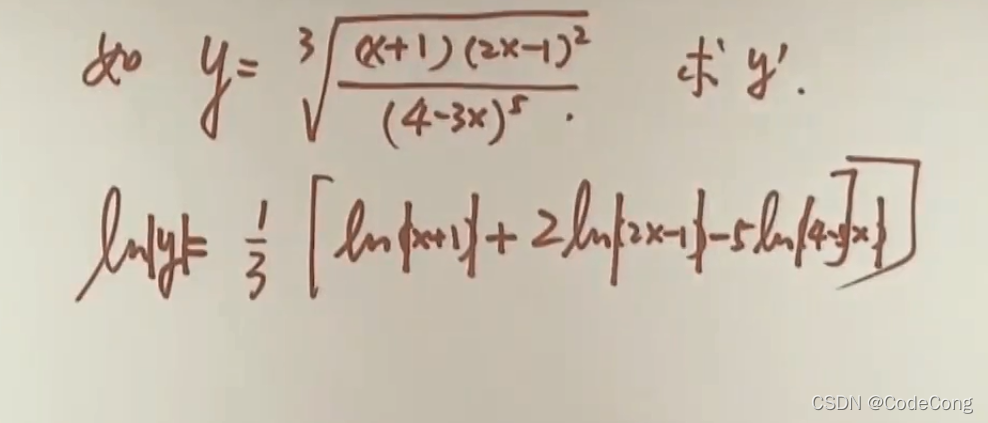 如 y = ∛((x+1)(2x-1)²/(4-3x)⁵) . 求 y'.
ln|y| = 1/3 [ln|x+1| + 2ln|2x-1| - 5ln|4-3x|]
CSDN @CodeCong